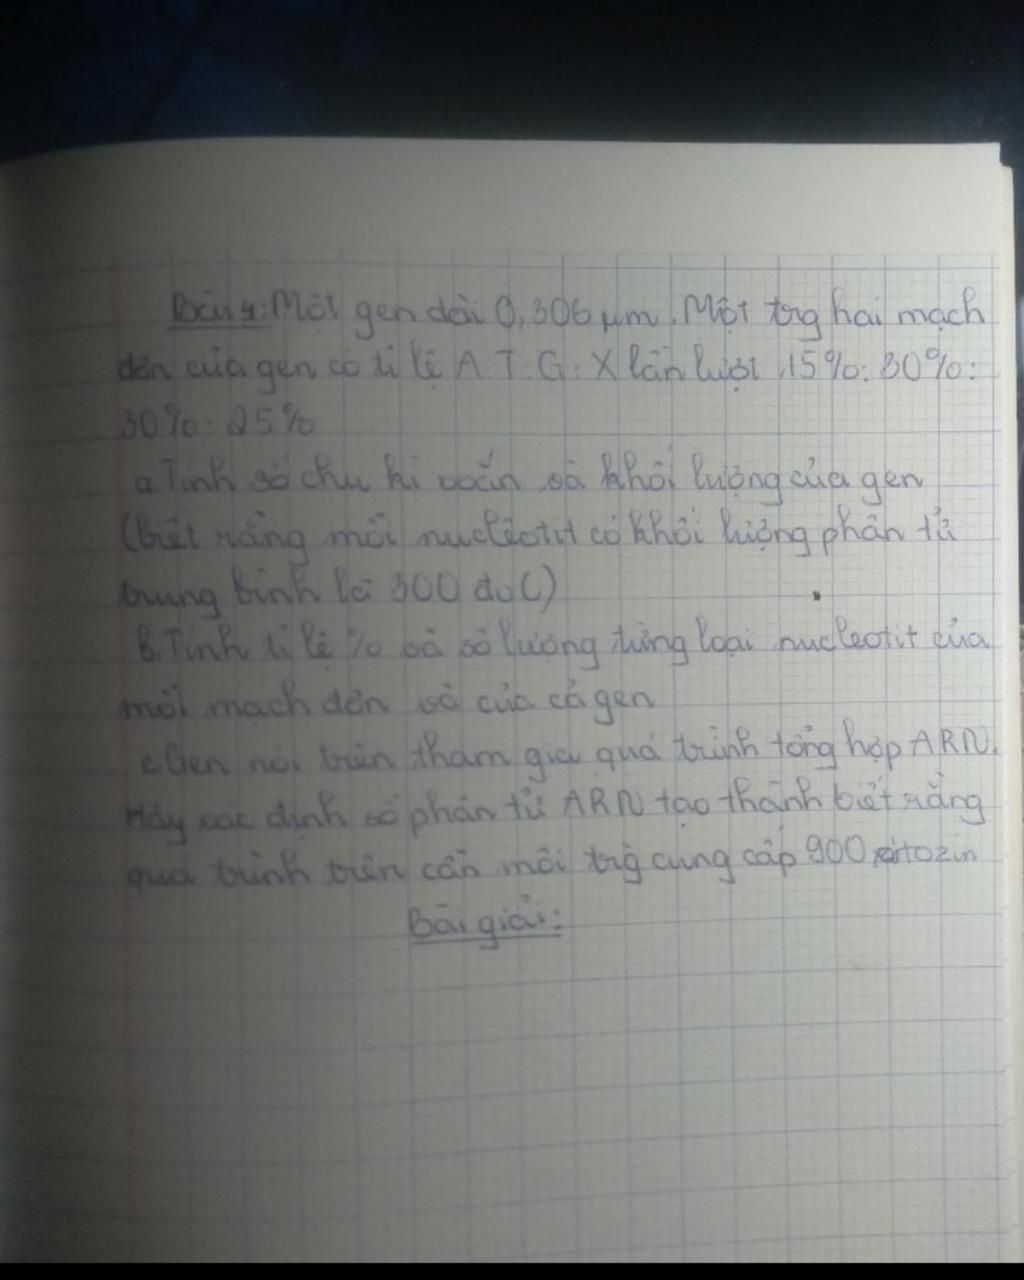 Bài 4: Một gen dài 0,306 µm. Một trg hai mạch
đơn của gen có tỉ lệ A T : G : X lần lượt 15% : 30% :
30% : 25%
a. Tính số chu kì xoắn và khối lượng của gen
(biết rằng mỗi nucleotit có khối lượng phân tử
trung bình là 300 đvC)
b. Tính tỉ lệ % và số lượng từng loại nucleotit của
mỗi mạch đơn và của cả gen
c. Gen nói trên tham gia quá trình tổng hợp ARN.
Hãy xác định số phân tử ARN tạo thành biết rằng
quá trình trên cần môi trg cung cấp 900 xitozin
Bài giải: